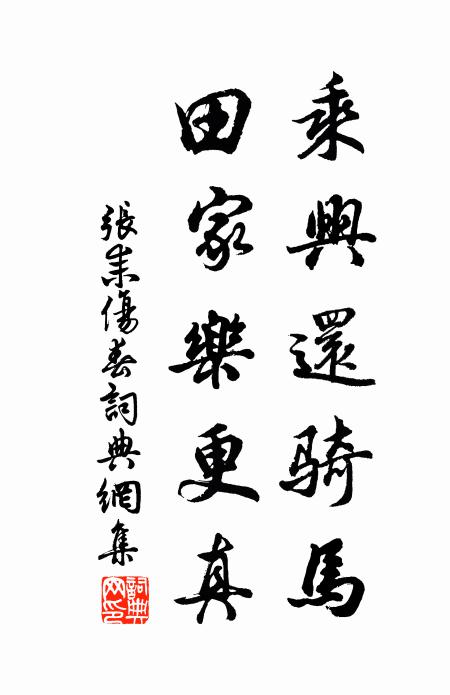 乘興還騎馬
田家樂更真
張耒傷春詞典網集
詞典網印